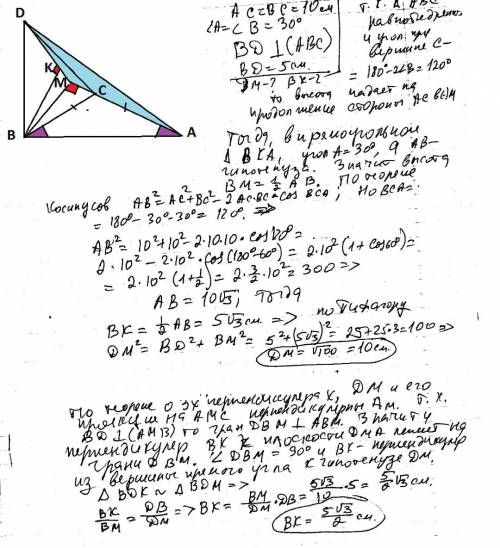 D
K
M
C
B
A
AC=BC=10см
∠A=∠B=30°
BD⊥(ABC)
BD=5см.
DM-? BK-?
равнобедрен
и угол при
вершине C-
=180°-2∠B=120°
то высота падает на
продолжение стороны AC
Тогда, в прямоугольном
угол A=30°, а AB-
гипотенуза. Значит высота
BM=½AB. По теореме
косинусов AB²=AC²+BC²-2AC·BC·cos BCA, ∠BCA=
=180°-30°-30°=120°. =>
AB²=10²+10²-2·10·10·cos120°=
2·10²-2·10²·cos(180°-60°)=2·10²(1+cos60°)=
=2·10²(1+½)=2·3/2·10²=300=>
AB=10√3, Тогда
BK=½AB=5√3см. => по Пифагору
DM²=BD²+BM²=5²+(5√3)²=25+25·3=100=>
DM=√100=10см.
По теореме о 3х перпендикулярах, DM и его
проекция на AMC перпендикулярны AM. Т.к.
BD⊥(AMB) то грань DBM⊥ABM. Значит
перпендикуляр BK к плоскости DMA лежит на
грани DBM. ∠DBM=90° и BK-перпендикуляр
из вершины прямого угла к гипотенузе DM.
△BDK∼△BDM=>
BK/BM=DB/DM=>BK=BM/DM·DB=5√3/10·5=5/2√3см.
BK=5√3/2см.